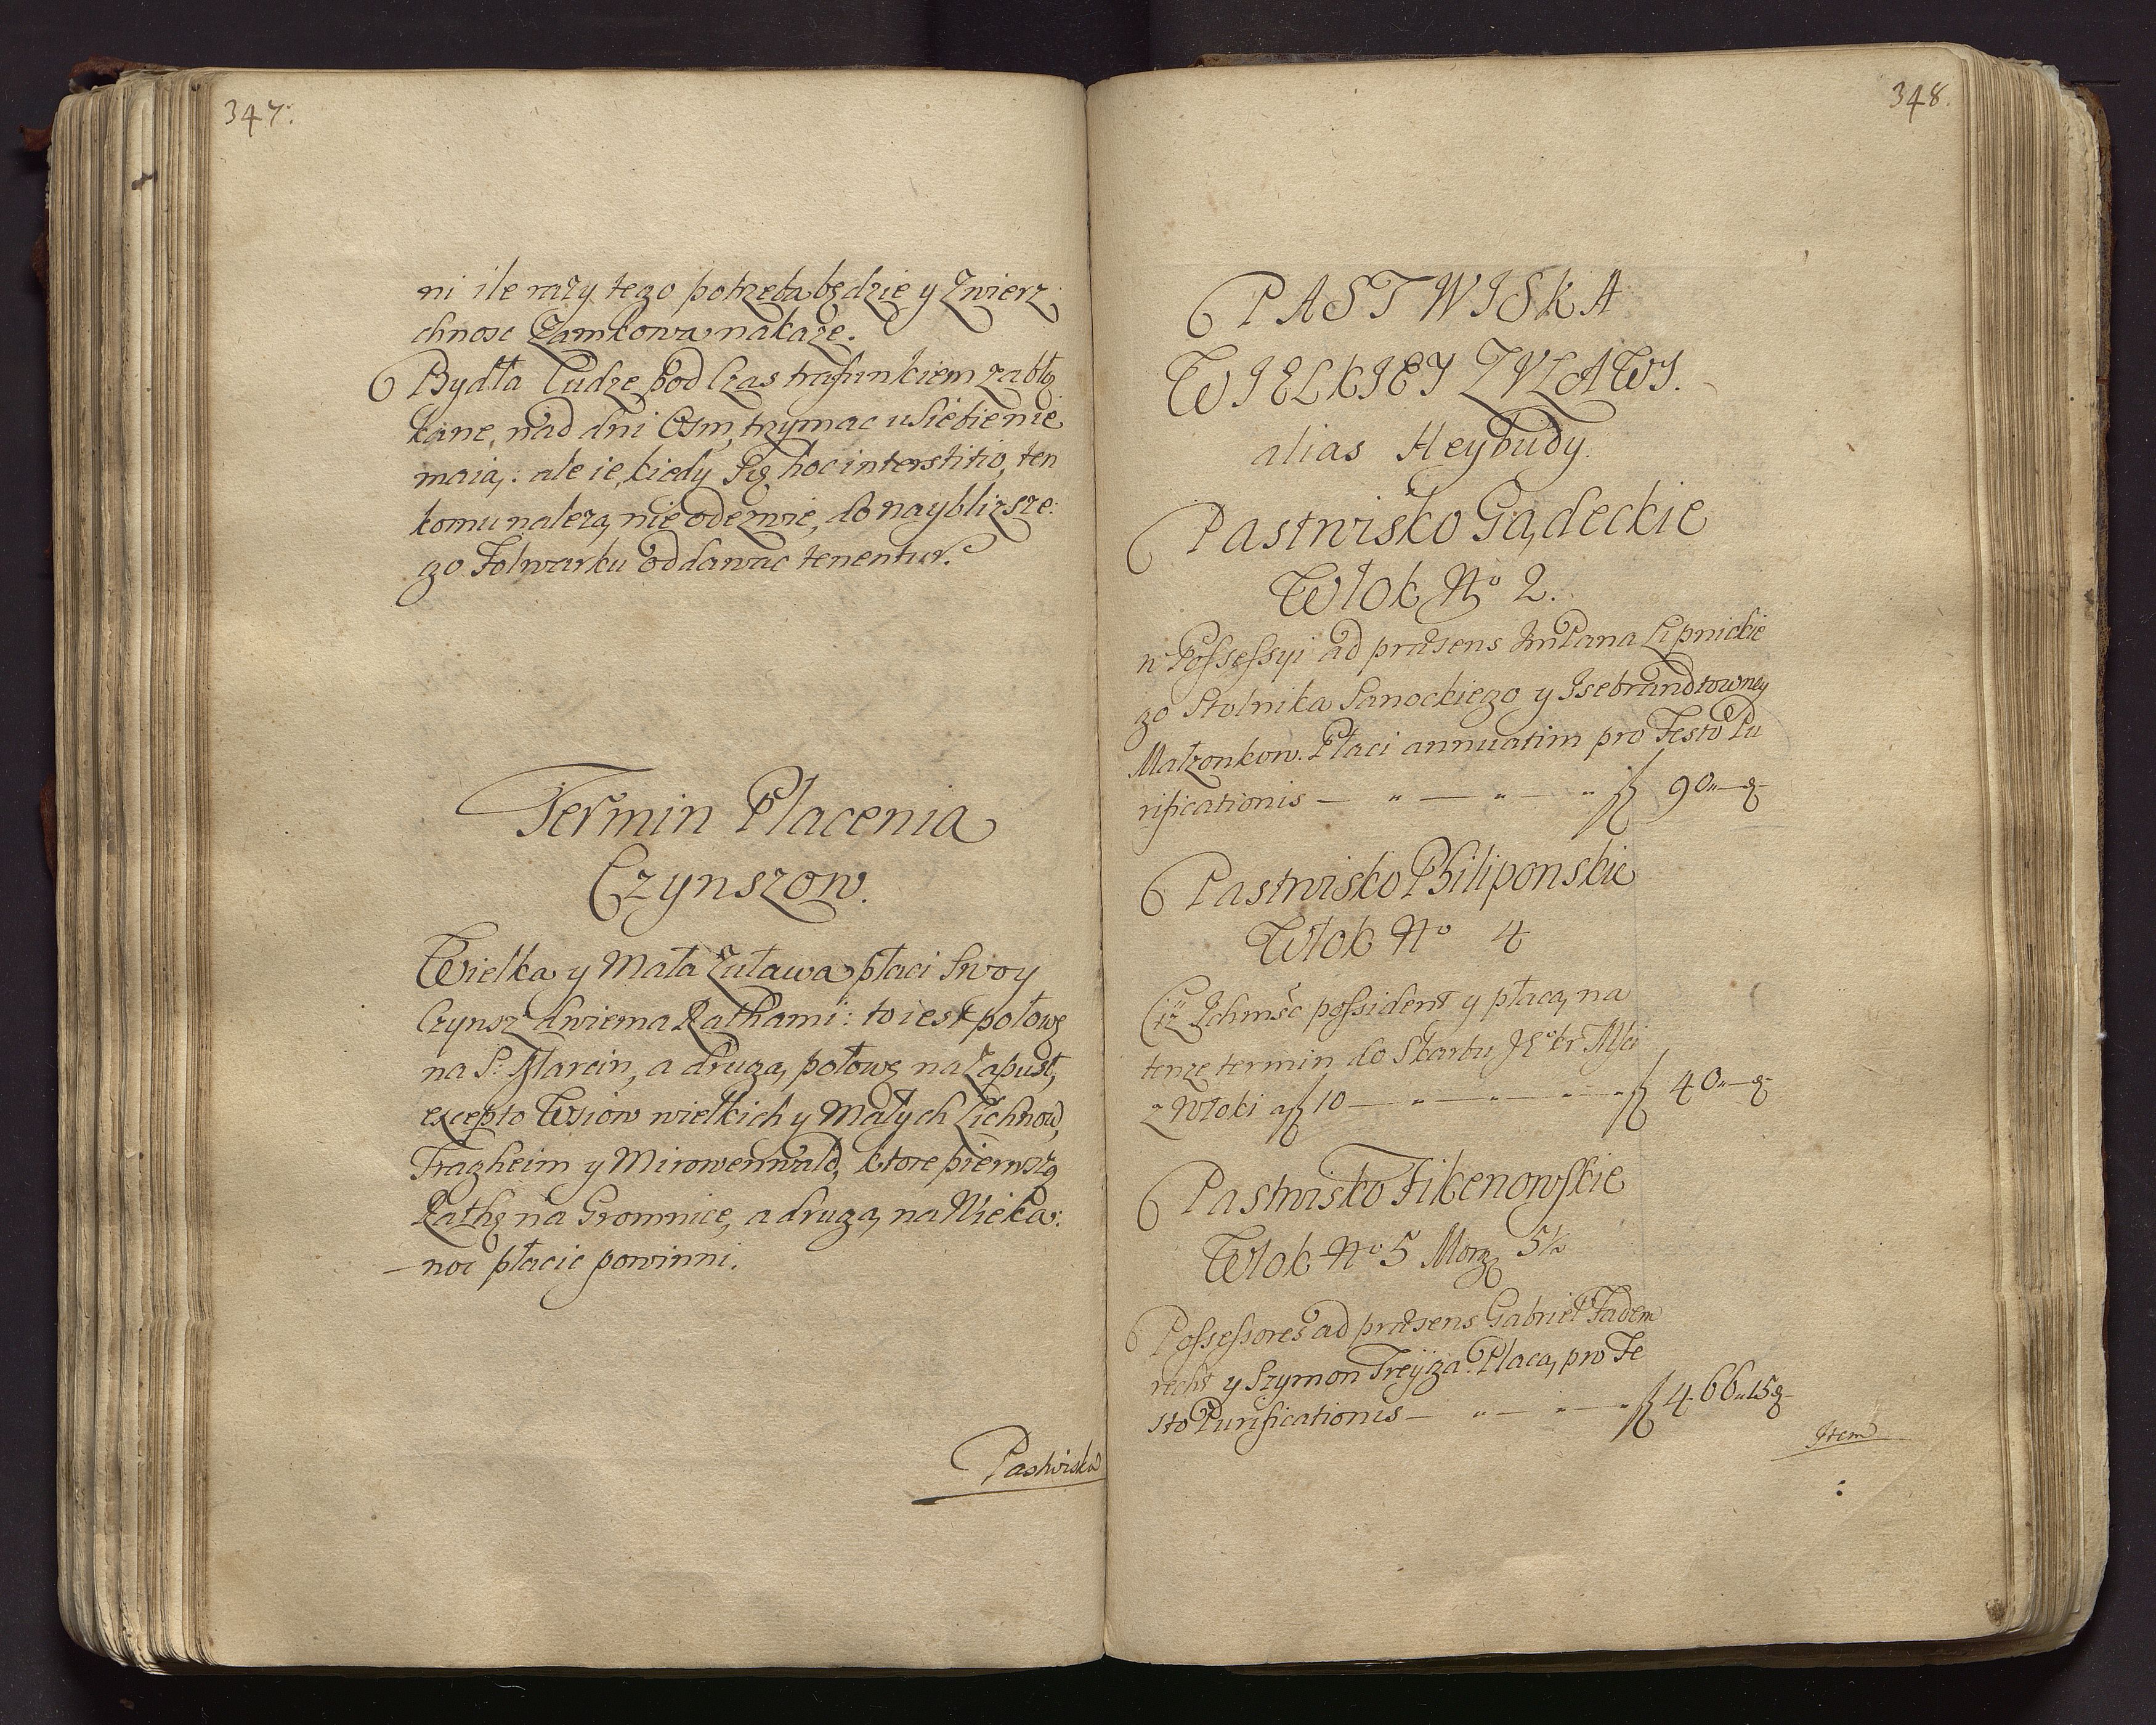 347.
ni ile razy tego potrzeba będzie y Zwierz
chnosc Zamkowa nakaze.
Bydła Cudze pod Czas trafunkiem zabłą
kane, nad dni Osm, trzymac u siebie nie
maią: ale ie, kiedy się hoc interstitio, ten
komu nalezą, nie odezwie, do nayblizsze:
go Folwarku oddawac tenentur.
Termin Płacenia
Czynszow.
Wielka y Mała Zuława płaci Swoy
Czynsz dwiema Rathami: to iest połowę
na S. Marcin, a drugą, połowę na Zapust,
excepto Wsiow wielkich y Małych Lichnow,
Tragheim y Mirowenwald, ktore pierwszą
Rathę na Gromnice, a drugą, na Wielka:
noc płacic powinni.
Pastwiska
348.
PASTWISKA
WIELKIEY ZUŁAWY.
alias Heybudy.
Pastwisko Gądeckie
Włok No 2.
w Possessyi ad præsens ImPana Lipnickie
go Stolnika Sanockiego y Isebrandtowney
Małzonkow. Płaci annuatim pro Festo Pu
rificationis — " — " — " f 90"—g
Pastwisko Philiponskie
Włok No 4
Ciz Ichmśc possident y płacą, na
tenze termin do Skarbu JKr Mci
z Włoki a f 10 — " — " — " — " f 40"—g
Pastwisko Fikenowskie
Włok No 5 Morg 5½
Possessores ad præsens Gabriel Fadem
recht y Szymon Treyga. Płacą, pro Fe
sto Purificationis — " — " — " f 466"15g
Item